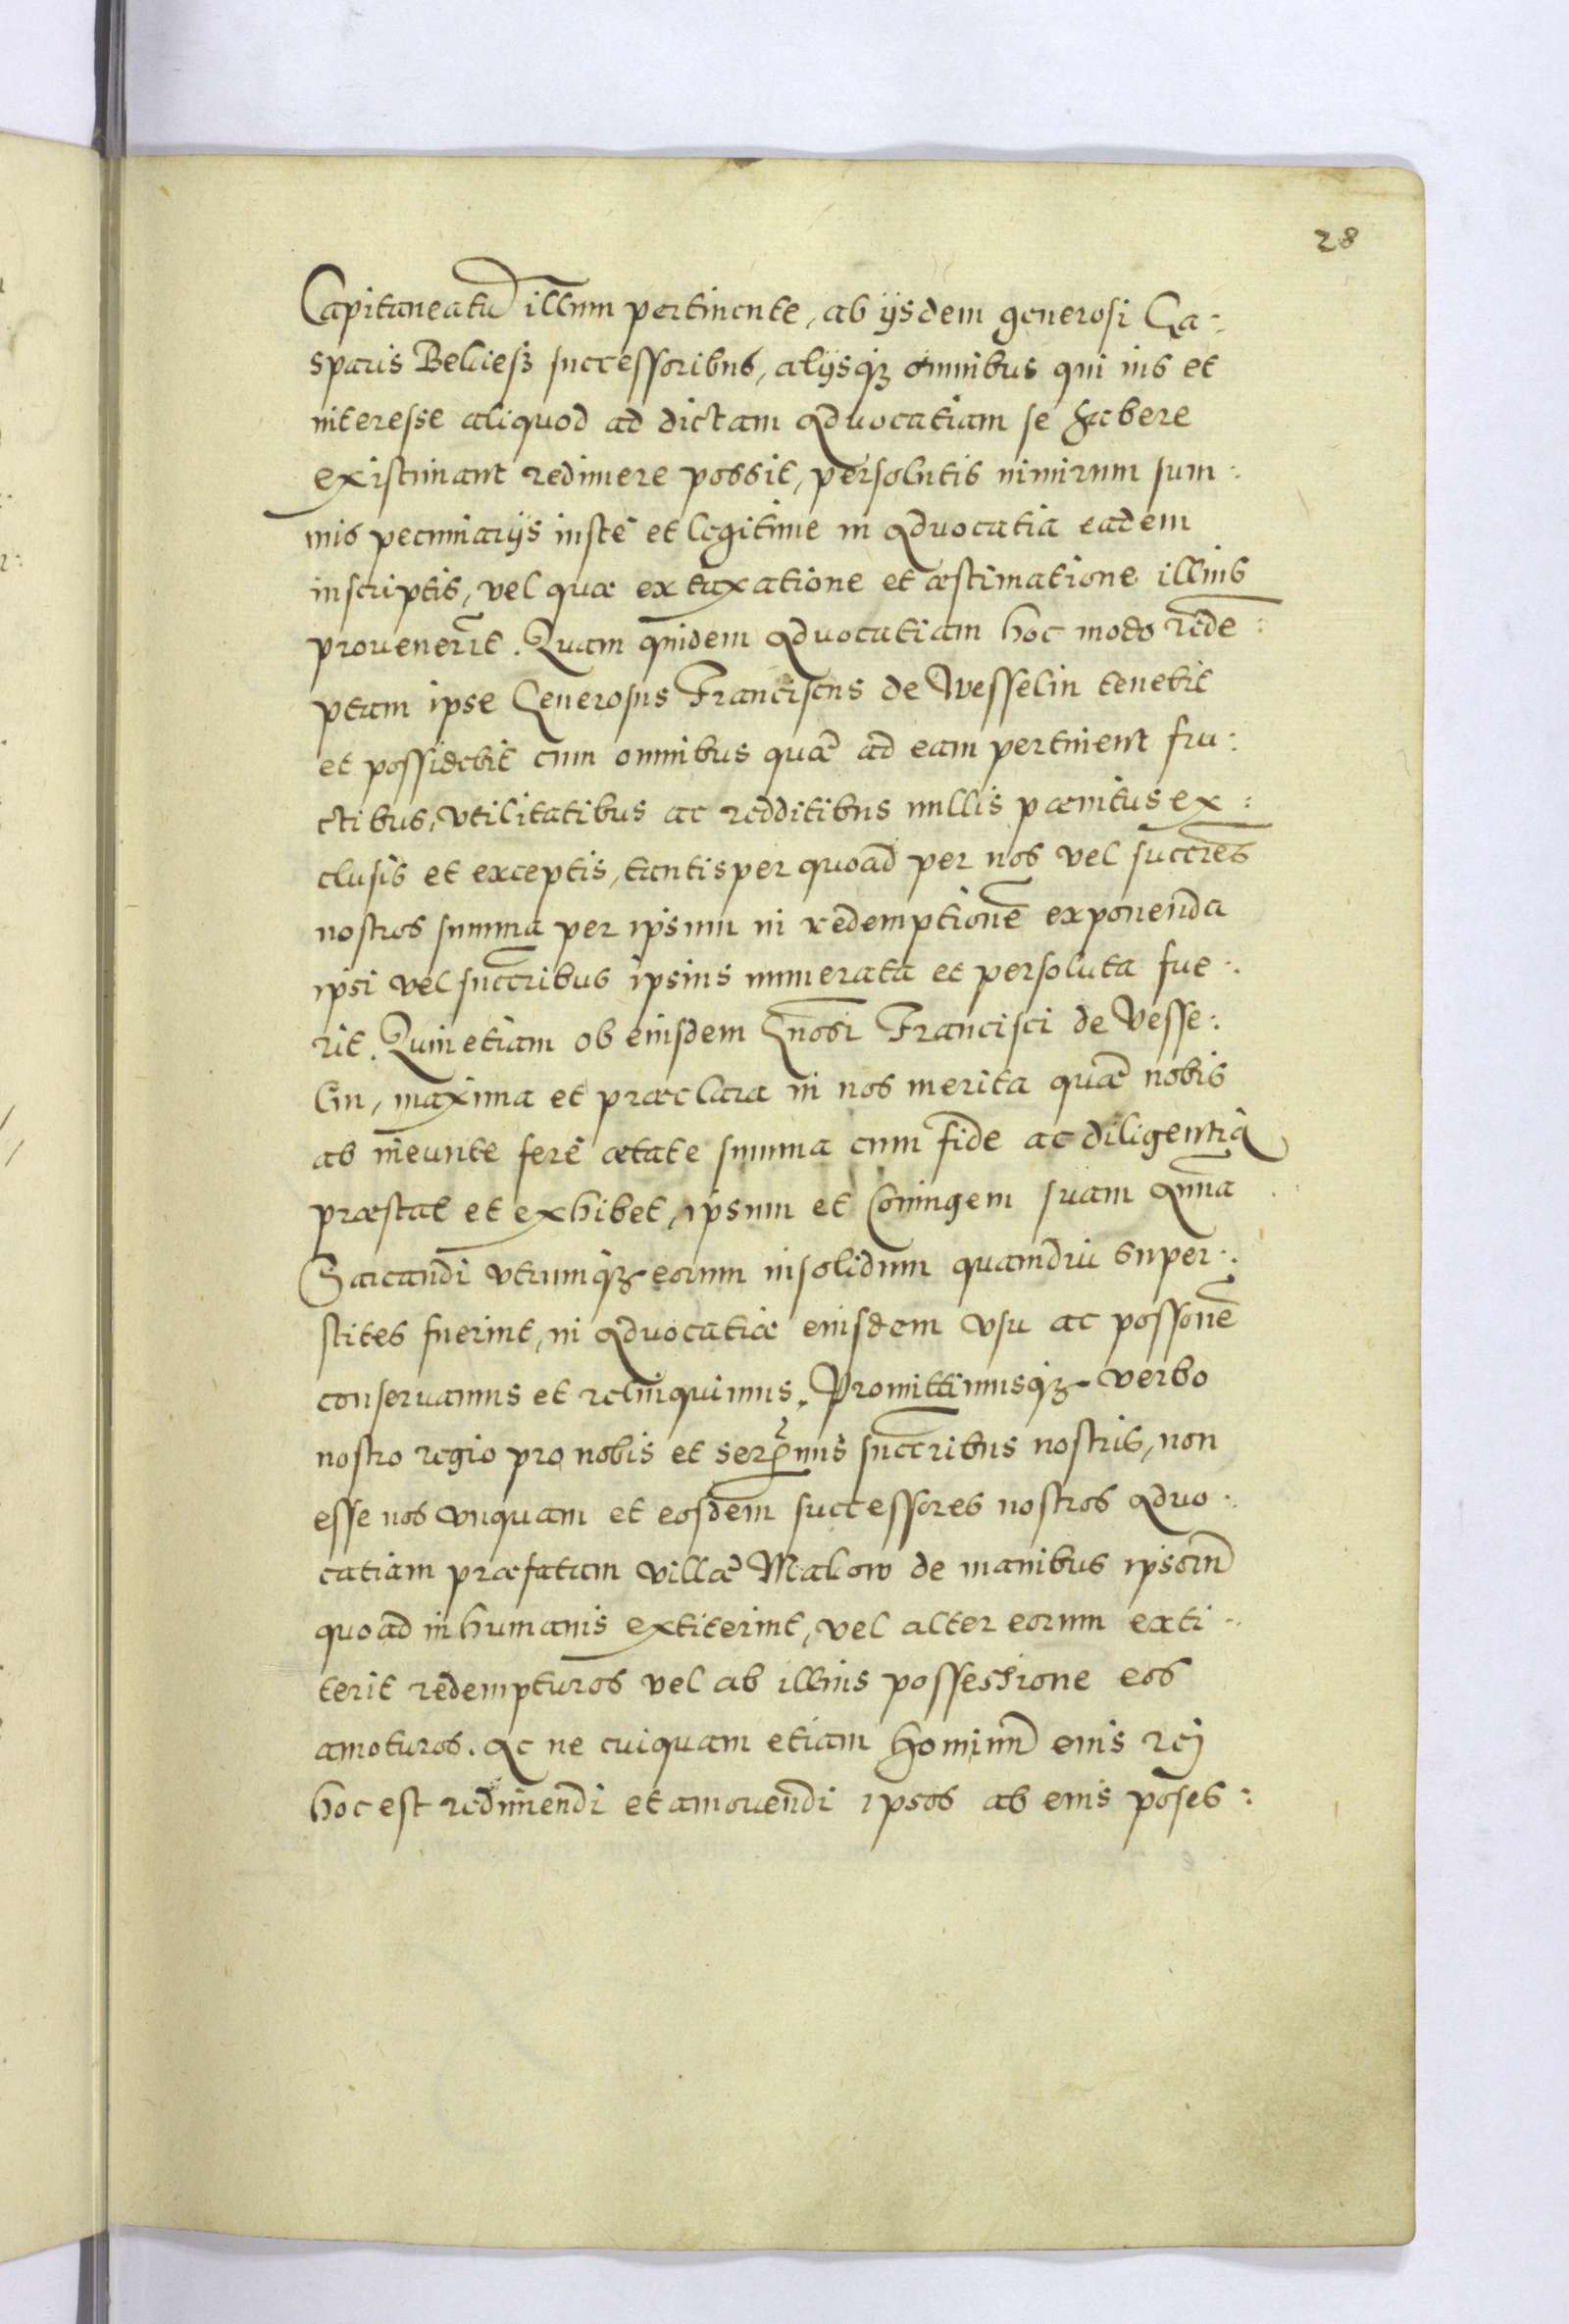 28
Capitaneatū illum pertinente, ab ijsdem generosi Ga-
sparis Beliesz successoribus, alijsqz omnibus qui ius et
interesse aliquod ad dictam Aduocatiam se habere
existimant redimere possit, persolutis nimirum sum:
mis pecuniarijs iustè et legitime in Aduocatia eadem
inscriptis, vel quæ ex taxatione et æstimatione illius
prouenerit. Quam quidem Aduocatiam hoc modo rede:
ptam ipse Generosus Franciscus de Wesselin tenebit
et possidebit cum omnibus quæ ad eam pertinent fru:
ctibus, vtilitatibus ac redditibus nullis pænitus ex:
clusis et exceptis, tantisper quoad per nos vel succr̄es
nostros summa per ipsum in redemptionē exponenda
ipsi vel succr̄ibus ipsius numerata et persoluta fue:
rit. Quin etiam ob eiusdem Gn̄osi Francisci de Vesse:
lin, maxima et præclara in nos merita quæ nobis
ab ineunte ferè ætate summa cum fide ac diligentia
præstat et exhibet, ipsum et Coniugem suam Anna
Sarcandi vtrumqz eorum insolidum quamdiu super:
stites fuerint, in Aduocatiæ eiusdem vsu ac possonē
conseruamus et relinquimus. Promittimusqz verbo
nostro regio pro nobis et serꝫmis succr̄ibus nostris, non
esse nos vnquam et eosdem successores nostros Aduo:
catiam præfatam villæ Malow de manibus ipsorū
quoad in humanis extiterint, vel alter eorum exti:
terit redempturos vel ab illius possessione eos
amoturos. Ac ne cuiquam etiam hominū eius rej
hoc est redimendi et amouendi ipsos ab eius poses: